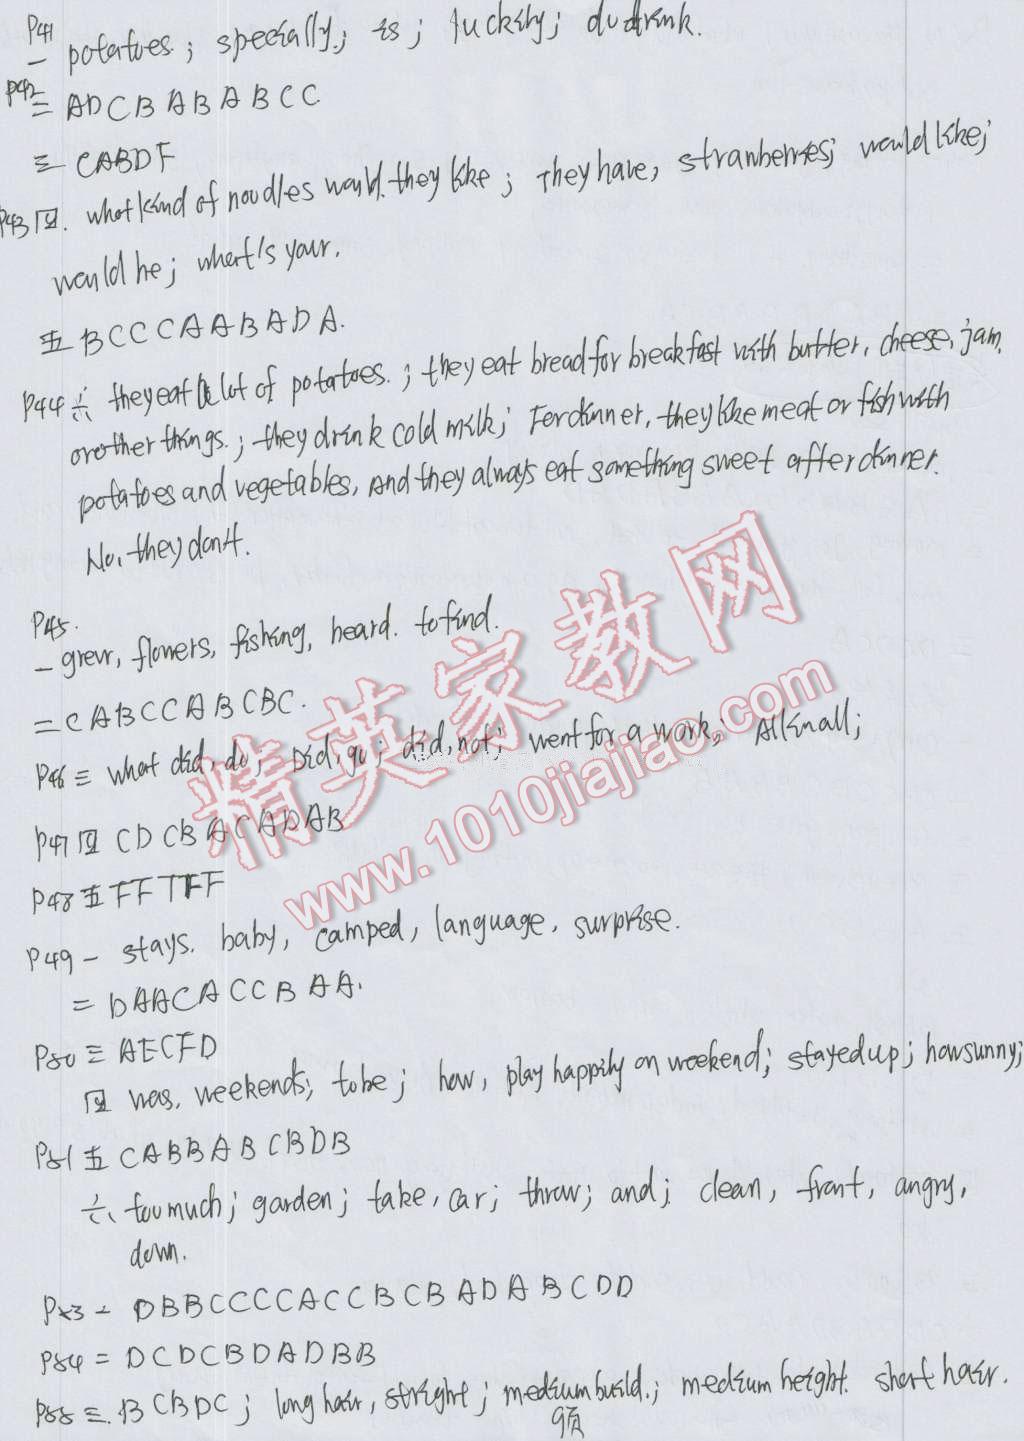 P41
一 potatoes; specially; is; luckily; dudrink.
P42
二 ADCBABABCC
三 CABDF
P43 四. what kind of noodles would they like; They have, stranberries; would like;
would he; what's your.
五 BCCCAABADA.
P44 六 they eat a lot of potatoes.; they eat bread for breakfast with butter, cheese, jam,
or other things.; they drink cold milk; For dinner, they like meat or fish with
potatoes and vegetables, And they always eat something sweet after dinner.
No, they don't.
P45.
一 grew, flowers, fishing, heard. to find.
二 CABCCABCBC.
P46 三 what did, do; Did, go; did, not; went for a work; All in all;
P47 四 CDCBACADAB
P48 五 FFTFF
P49 一 stays. baby, camped, language, surprise.
二 DAACACCBAA.
P50 三 AECFD
四 was, weekends; to be; how, play happily on weekend; stayed up; how sunny;
P51 五 CABBABCBDB
六、too much; garden; take, car; throw; and; clean, front, angry,
down.
P53 一 DBBCCCCACCBCBADABCDD
P54 二 DCDCBDADBB
P55 三. BCBDC; long hair, stright; medium build.; medium height. short hair.
9页
精英家教网
www.1010jiajiao.com